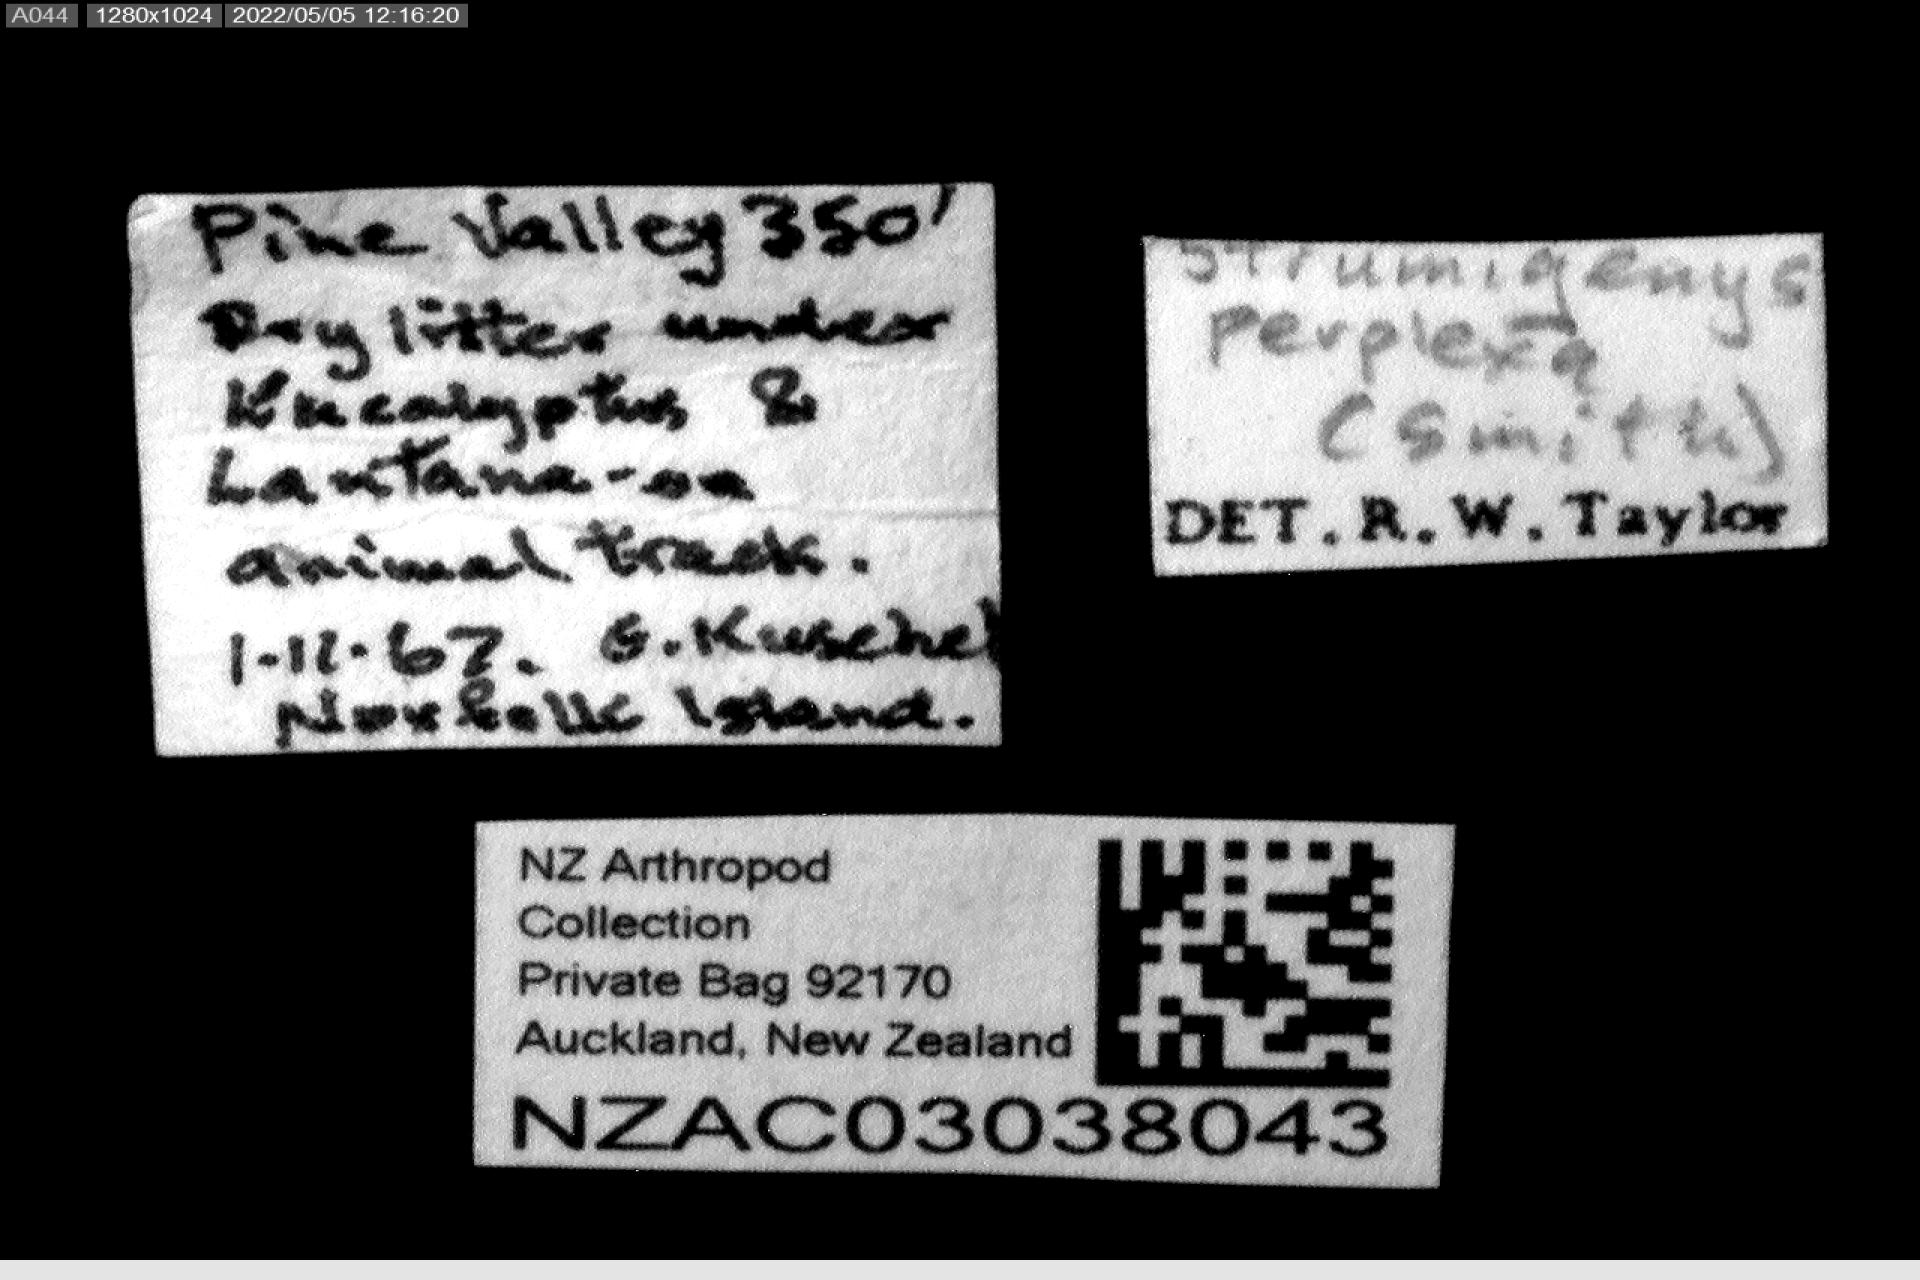 A044 1280x1024 2022/05/05 12:16:20
Pine Valley 350'
Dry litter under
Eucalyptus &
Lantana - on
animal track.
1.11.67. G. Kuschel
Norfolk Island.
Strumigenys
perplexa
(Smith)
DET. R. W. Taylor
NZ Arthropod
Collection
Private Bag 92170
Auckland, New Zealand
NZAC03038043